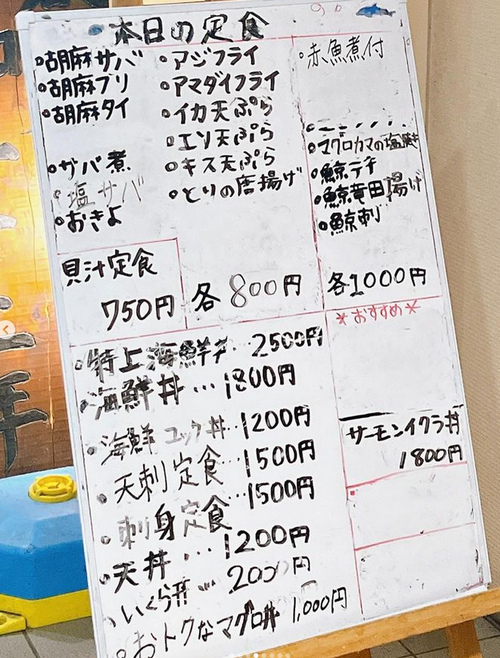 本日の定食
・胡麻サバ
・胡麻ブリ
・胡麻タイ
・サバ煮
・塩サバ
・おきよ
・アジフライ
・アマダイフライ
・イカ天ぷら
・エソ天ぷら
・キス天ぷら
・とりの唐揚げ
各800円
・赤魚煮付
・マグロカマの塩焼き
・鯨テキ
・鯨竜田揚げ
・鯨刺
各1000円
貝汁定食
750円
・特上海鮮丼… 2500円
・海鮮丼…1800円
・海鮮ユッケ丼…1200円
・天刺定食…1500円
・刺身定食…1500円
・天丼…1200円
・いくら丼…2000円
・おトクなマグロ丼 1,000円
*おすすめ*
サーモンイクラ丼
1800円